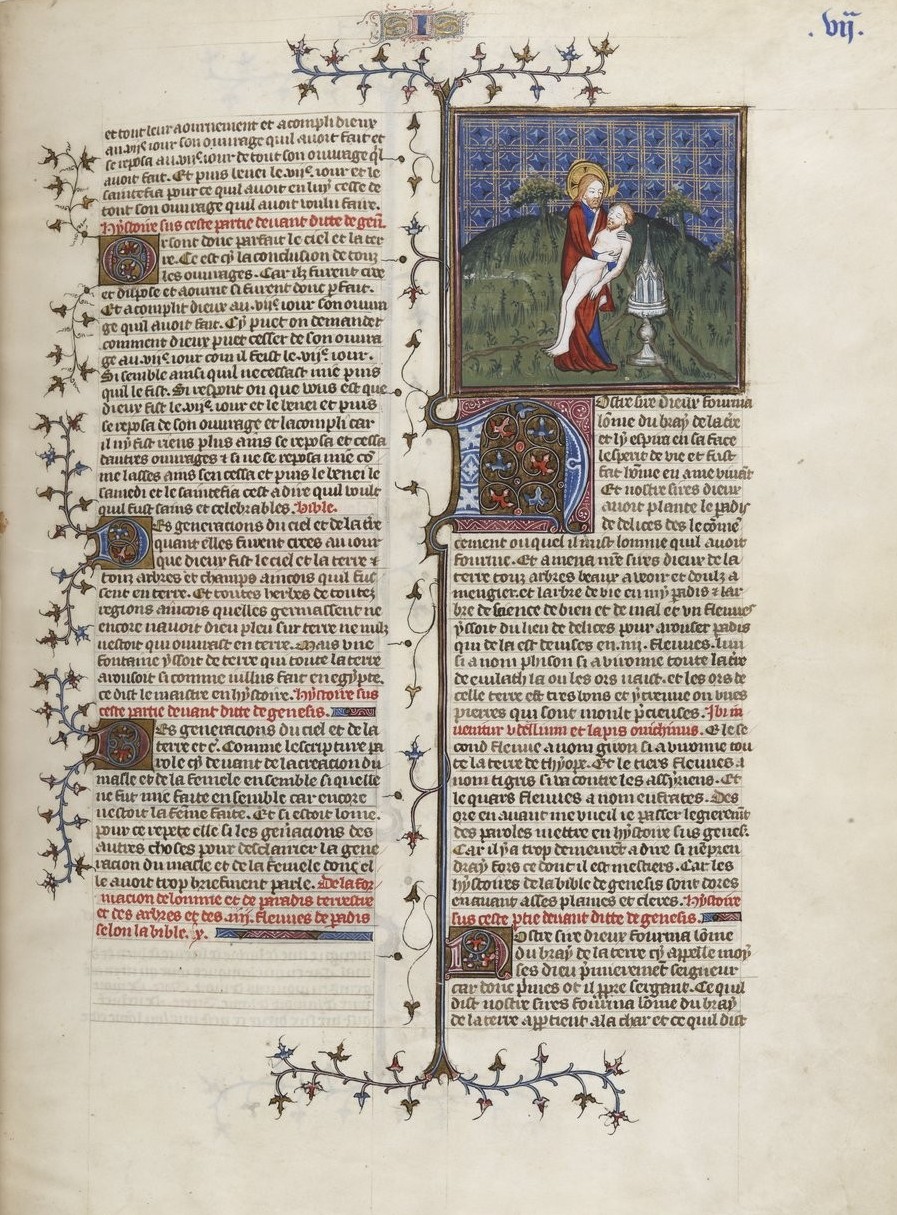 I
.vij.
et tout leur aournement et acompli dieux
au .vije. iour son ouurage quil auoit fait et
se reposa au .vije. iour de tout son ouurage ql
auoit fait. Et puis benei le .vije. iour et le
saintefia pour ce quil auoit en luy cesse de
tout son ouurage quil auoit voulu faire.
Hystoire sus ceste partie deuant ditte de gen.
Or sont donc parfait le ciel et la ter
re. Ce est cy la conclusion de touz
les ouurages. Car ilz furent cree
et dispose et aourne si furent donc pfait.
Et acomplit dieux au .vije. iour son ouura
ge quil auoit fait. Cy puet on demander
comment dieux puet cesser de son ouura
ge au .vije. iour com il feist le .vije. iour.
Si semble ainsi quil ne cessast mie puis
quil le fist. Si respont on que vous est que
dieux fist le .vije. iour et le benei et puis
se reposa de son ouurage et lacompli car
il ny fist riens plus ains se reposa et cessa
dautres ouurages & si ne se reposa mie co
me lasses ains sen cessa et puis le benei le
samedi et le saintefia cest a dire quil voult
quil fust sains et celebrables. Bible.
Es generacions du ciel et de la tre
quant elles furent crees au iour
que dieux fist le ciel et la terre &
touz arbres et champs aincois quil fus
sent en terre. Et toutes herbes de toutez
regions aincois quelles germassent ne
encore nauoit dieu pleu sur terre ne nulz
nestoit qui ouurast en terre. Mais vne
fontaine yssoit de terre qui toute la terre
arousoit si comme nillus fait en egypte.
ce dist le maistre en hystoire. Hystoire sus
ceste partie deuant ditte de genesis.
Es generacions du ciel et de la
terre et c. Comme lescripture pa
role cy deuant de la creacion du
masle et de la femele ensemble si quelle
ne fut mie faite ensemble car encore
nestoit la feme faite. Et si estoit lome.
pour ce repete elle si les genacions des
autres choses pour desclairier la gene
racion du masle et de la femele donc el
le auoit trop briefment parle. De la for
macion de lomme et de paradis terrestre
et des arbres et des .iiij. fleuues de padis
selon la bible. x.
Nostre sire dieux fourma
lome du bray de la tre
et ly espira en sa face
lesperit de vie et fust
fait home en ame viuant
Et nostre sires dieux
auoit plante le padis
de delices des le come
cement ouquel il mist lomme quil auoit
fourme. Et amena nre sires dieux de la
terre touz arbres beaux a veoir et doulz a
mengier. et larbre de vie en my padis & lar
bre de science de bien et de mal et vn fleuues
yssoit du lieu de delices pour arouser padis
qui de la est deuises en .iiij. fleuues. lun
si a nom phison si auironne toute la tre
de euilath la ou les ors naist. et les ors de
celle terre est tres bons et y treuue on unes
pierres qui sont moult pcieuses. Ibi in
uenitur bdellium et lapis onichinus. & le se
cond fleuue a nom gyon si auironne tou
te la terre de thyope. Et le tiers fleuues a
nom tigris si va contre les assyriens. Et
le quars fleuues a nom eufrates. Des
ore en auant me vueil ie passer legierement
des paroles mettre en hystoire sus genes.
Car il y a trop demeurer a dire si nen pren
dray fors ce dont il est mestiers. Car les
hystoires de la bible de genesis sont dores
en auant asses plaines et cleres. Hystoire
sus ceste ptie deuant ditte de genesis.
Nostre sire dieux fourma lome
du bray de la terre cy appelle moy
ses dieu pmierement seigneur
car donc pmies ot il ppre sergant. Ce quil
dist nostre sires fourma lome du bray
de la terre apptient a la char et ce quil dist